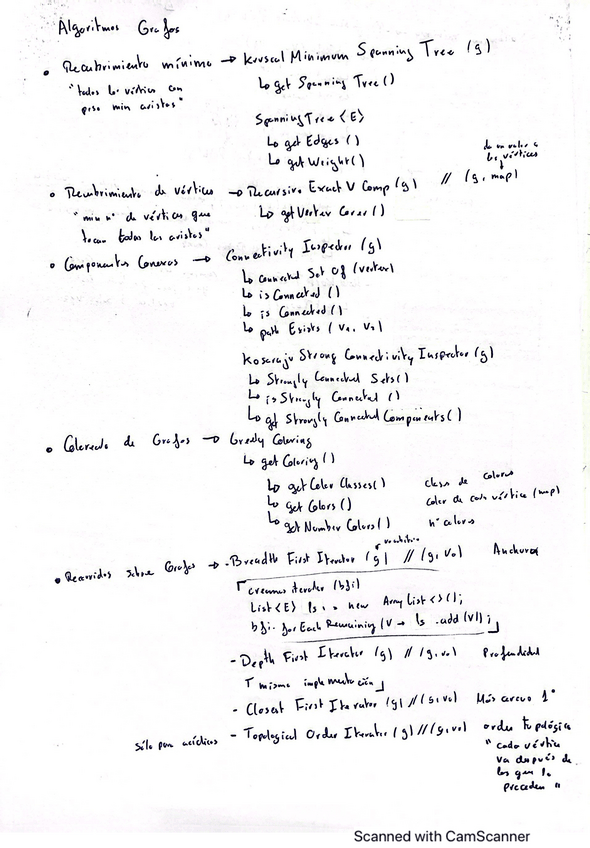 Algoritmos Grafos
• Recubrimiento mínimo → Kruscal Minimum Spanning Tree (g)
"todos los vértices con
peso min aristas"
↳ get Spanning Tree ()
Spanning Tree <E>
↳ get Edges ()
↳ get Weight()
• Recubrimiento de vértices → Recursive Exact V Comp (g) // (g, map)
da un valor a
los vértices
"min nº de vértices que
tocan todas las aristas"
↳ get Vertex Cover ()
• Componentes Conexas → Connectivity Inspector (g)
↳ connected Set Of (vertex)
↳ is Connected ()
↳ is Connected ()
↳ path Exists (v1, v2)
Kosaraju Strong Connectivity Inspector (g)
↳ Strongly Connected Sets()
↳ is Strongly Connected ()
↳ get Strongly Connected Components()
• Coloreado de Grafos → Greedy Coloring
↳ get Coloring ()
↳ get Color Classes() clases de colores
↳ get Colors () color de cada vértice (map)
↳ get Number Colors() nº colores
• Recorridos sobre Grafos → - Breadth First Iterator (g) // (g, vo) Anchura
creamos iterator (bfi)
List <E> ls = new Array List <>();
bfi. for Each Remaining (v → ls .add (v));
- Depth First Iterator (g) // (g, vo) Profundidad
misma implementación
- Closest First Iterator (g) // (g, vo) Más cercano 1º
Sólo para acíclicos - Topological Order Iterator (g) // (g, vo) orden topológico
"cada vértice
va después de
los que lo
preceden"
Scanned with CamScanner